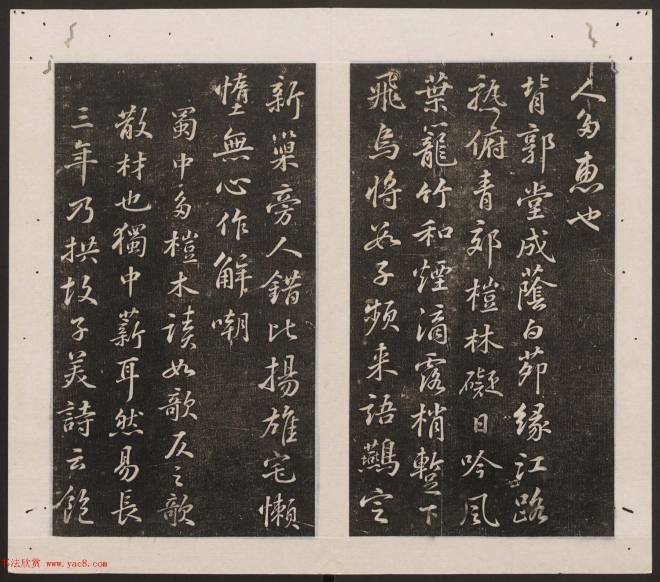 人多惠也
背郭堂成蔭白茆緣江路
熟俯青郊榿林礙日吟風
葉籠竹和煙滴露梢蹔下
飛烏將數子頻来語鷰定
新巢旁人錯比揚雄宅懶
憜無心作解嘲
蜀中多榿木讀如欹仄之欹
散材也獨中薪耳然易長
三年乃拱故子美詩云飽
书法欣赏 www.yac8.com